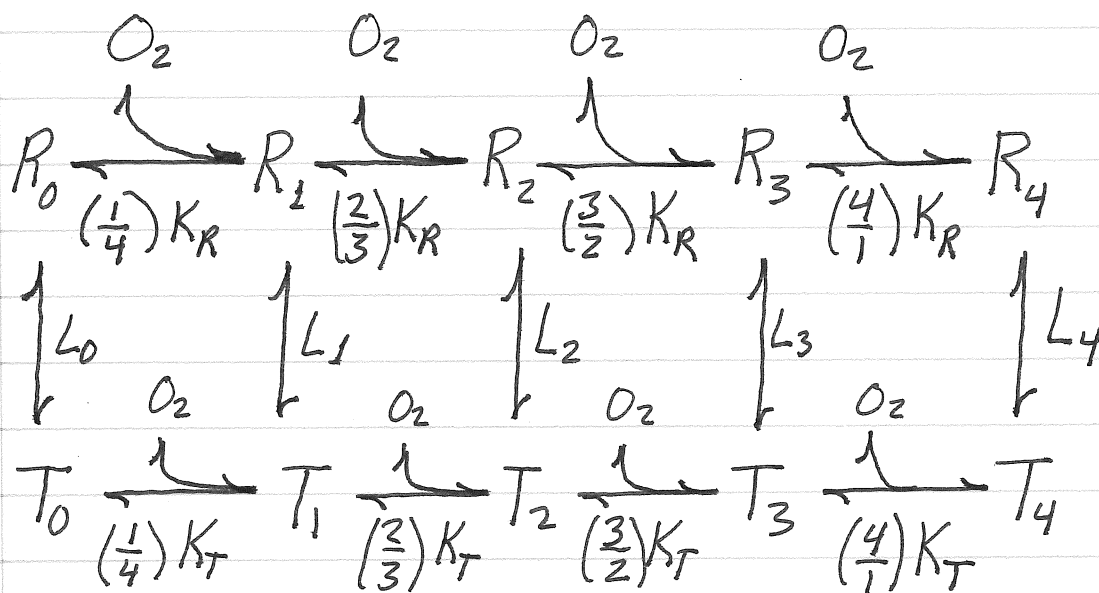 O₂ O₂ O₂ O₂
R₀ R₁ R₂ R₃ R₄
(1/4)K_R (2/3)K_R (3/2)K_R (4/1)K_R
L₀ L₁ L₂ L₃ L₄
O₂ O₂ O₂ O₂
T₀ T₁ T₂ T₃ T₄
(1/4)K_T (2/3)K_T (3/2)K_T (4/1)K_T